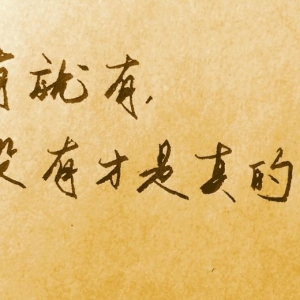 有就有,
没有才是真的